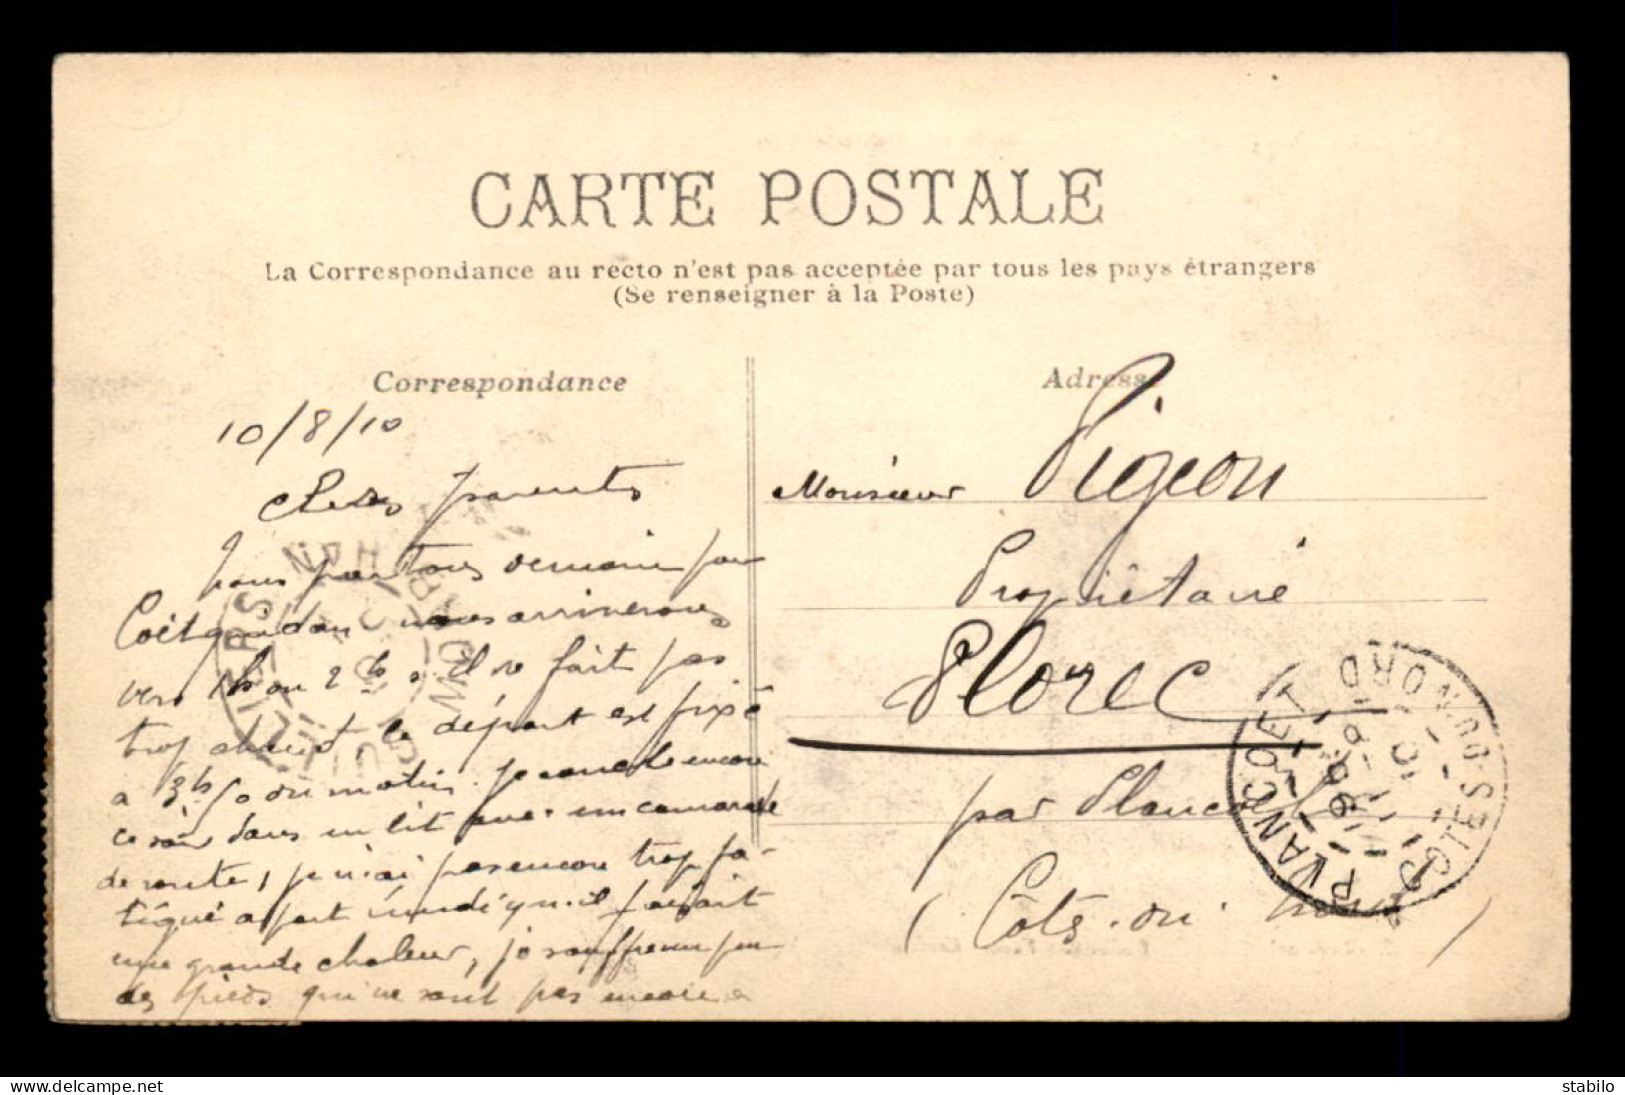 CARTE POSTALE
La Correspondance au recto n'est pas acceptée par tous les pays étrangers
(Se renseigner à la Poste)
Correspondance
10/8/10
Chers parents
nous partons demain pour
Coëtquidan nous arriverons
vers 1h ou 2h, il ne fait pas
trop chaud le départ est fixé
a 3h du matin. je couche encore
ce soir dans un lit avec un camarade
de route, je n'ai pas encore trop fa-
tigué a part lundi qu'il faisait
une grande chaleur, je souffre un peu
des pieds qui ne sont pas encore
Adresse
Monsieur Pigeon
Propriétaire
Plorec
par Plancoët
(Côtes-du-Nord)
PLANCOET
COTES-DU-NORD
stabilo
delcampe.net